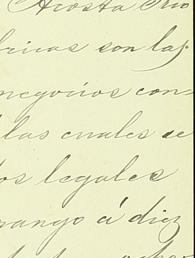 Acosta Rio
bricas son las
negocios con-
las cuales se
os legales
rango á diez